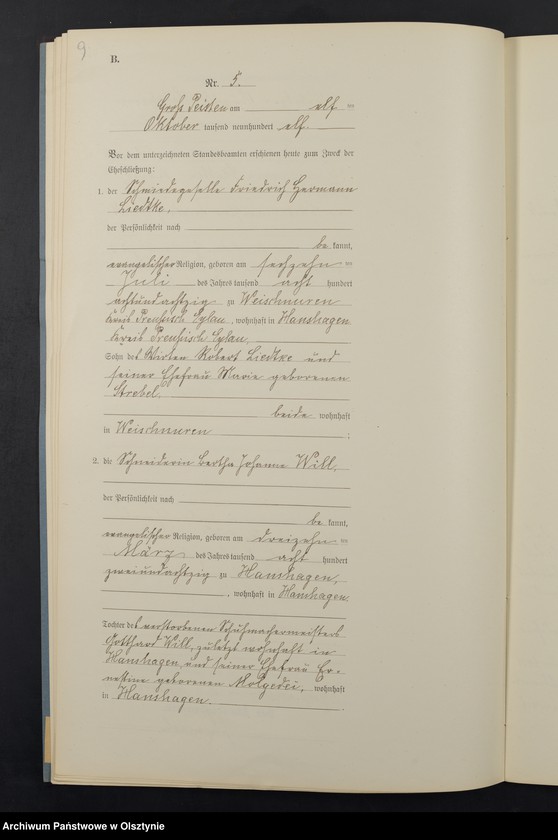 9
B.
Nr. 5.
Groß Peisten am elf ten
Oktober tausend neunhundert elf.
Vor dem unterzeichneten Standesbeamten erschienen heute zum Zweck der
Eheschließung:
1. der Schmiedegeselle Friedrich Hermann
Liedtke,
der Persönlichkeit nach
be kannt,
evangelischer Religion, geboren am sechzehn ten
Juli des Jahres tausend acht hundert
achtundachtzig zu Weischnuren
Kreis Preußisch Eylau, wohnhaft in Hanshagen
Kreis Preußisch Eylau,
Sohn des Robert Liedtke und
seiner Ehefrau Marie geborenen
Strobel,
beide wohnhaft
in Weischnuren ;
2. die Schneiderin Bertha Johanne Will,
der Persönlichkeit nach
be kannt,
evangelischer Religion, geboren am dreizehn ten
März des Jahres tausend acht hundert
zweiundachtzig zu Hanshagen,
, wohnhaft in Hanshagen,
Tochter des verstorbenen Schuhmachermeisters
Gotthard Will, zuletzt wohnhaft in
Hanshagen, und seiner Ehefrau Er-
nestine geborenen wohnhaft
in Hanshagen.
Archiwum Państwowe w Olsztynie